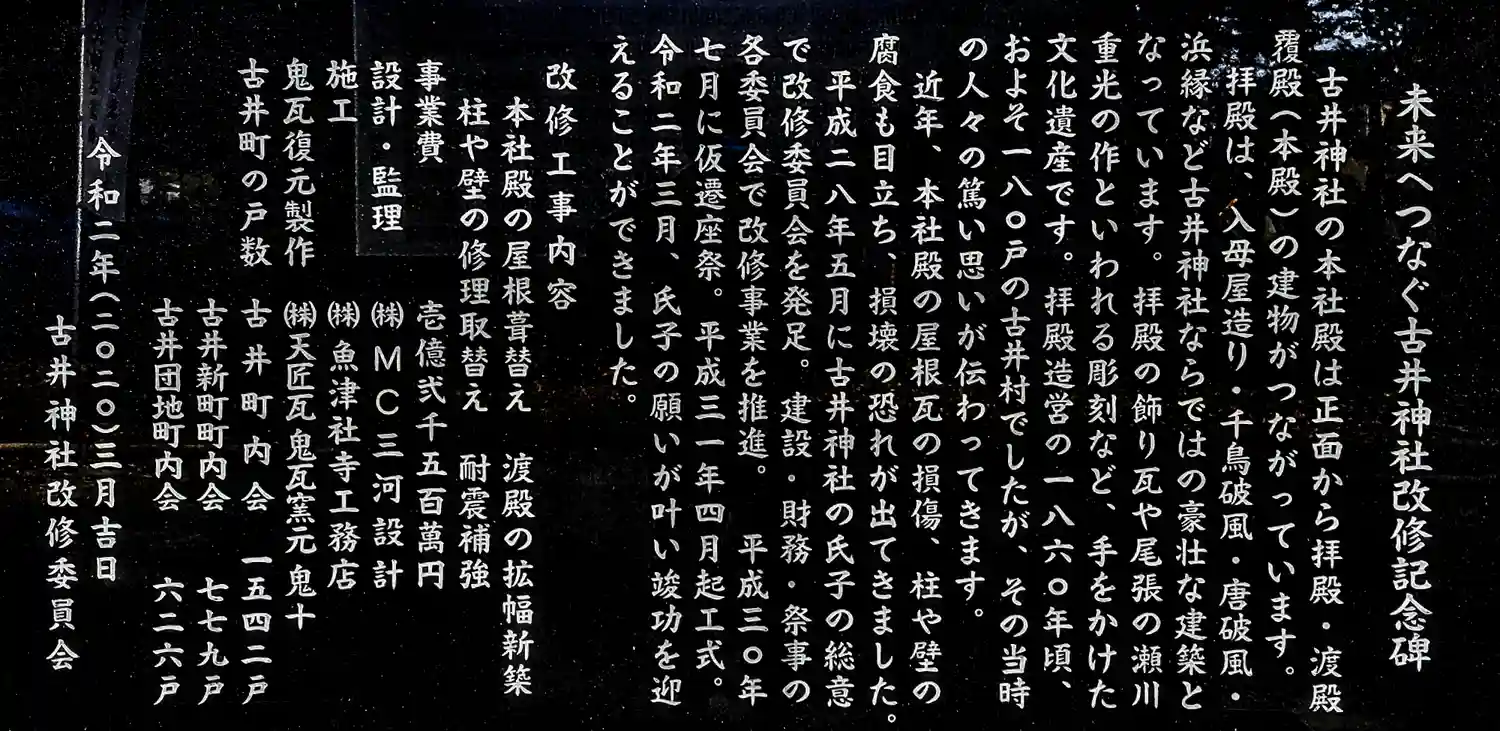 未来へつなぐ古井神社改修記念碑
古井神社の本社殿は正面から拝殿・渡殿
覆殿(本殿)の建物がつながっています。
拝殿は、入母屋造り・千鳥破風・唐破風・
浜縁など古井神社ならではの豪壮な建築と
なっています。拝殿の飾り瓦や尾張の瀬川
重光の作といわれる彫刻など、手をかけた
文化遺産です。拝殿造営の一八六〇年頃、
およそ一八〇戸の古井村でしたが、その当時
の人々の篤い思いが伝わってきます。
近年、本社殿の屋根瓦の損傷、柱や壁の
腐食も目立ち、損壊の恐れが出てきました。
平成二八年五月に古井神社の氏子の総意
で改修委員会を発足。建設・財務・祭事の
各委員会で改修事業を推進。 平成三〇年
七月に仮遷座祭。平成三一年四月起工式。
令和二年三月、氏子の願いが叶い竣功を迎
えることができました。
改修工事内容
本社殿の屋根葺替え 渡殿の拡幅新築
柱や壁の修理取替え 耐震補強
事業費 壱億弐千五百萬円
設計・監理 ㈱MC三河設計
施工 ㈱魚津社寺工務店
鬼瓦復元製作 ㈱天匠瓦鬼瓦窯元鬼十
古井町の戸数 古井町内会 一五四二戸
古井新町町内会 七七九戸
古井団地町内会 六二六戸
令和二年(二〇二〇)三月吉日
古井神社改修委員会